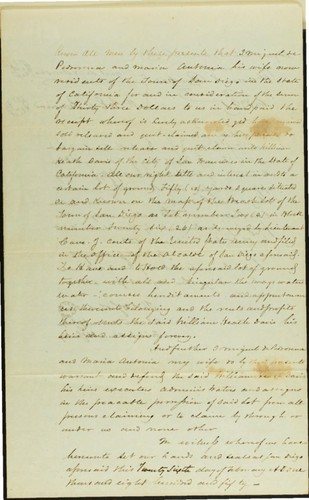 Know all men by these presents that I Miguel de
Pedrorena and Maria Antonia his wife now
residents of the Town of San Diego in the State
of California for and in consideration of the sum
of Thirty three Dollars to us in hand paid the
receipt whereof is hereby acknowledged have
sold released and quit claimed and
bargain sell release and quit claim unto William
Heath Davis of the City of San Francisco in the State of
California. All our right title and interest in and to a
certain lot of ground fifty square situated
and known on the map of the Beach lots of the
Town of San Diego as lot number in Block
number Twenty six as designed by Lieutenant
Cave J. Couts of the United States Army and filed
in the office of the Alcalde of San Diego aforesaid
To Have and to Hold the aforesaid lot of ground
together with all and singular the ways waters
water courses hereditaments and appurtenan
ces thereunto belonging and the rents and profits
thereof unto the said William Heath Davis his
heirs and assigns forever.
And further I Miguel de Pedrorena
and Maria Antonia my wife do
warrant and defend the said William Davis
his heirs executors administrators and assigns
in the peaceable possession of said lot from all
persons claiming or to claim by through or
under us and none other
In witness whereof we have
hereunto set our hands and seals at San Diego
aforesaid this Twenty Sixth day of February A.D. one
thousand eight hundred and fifty —